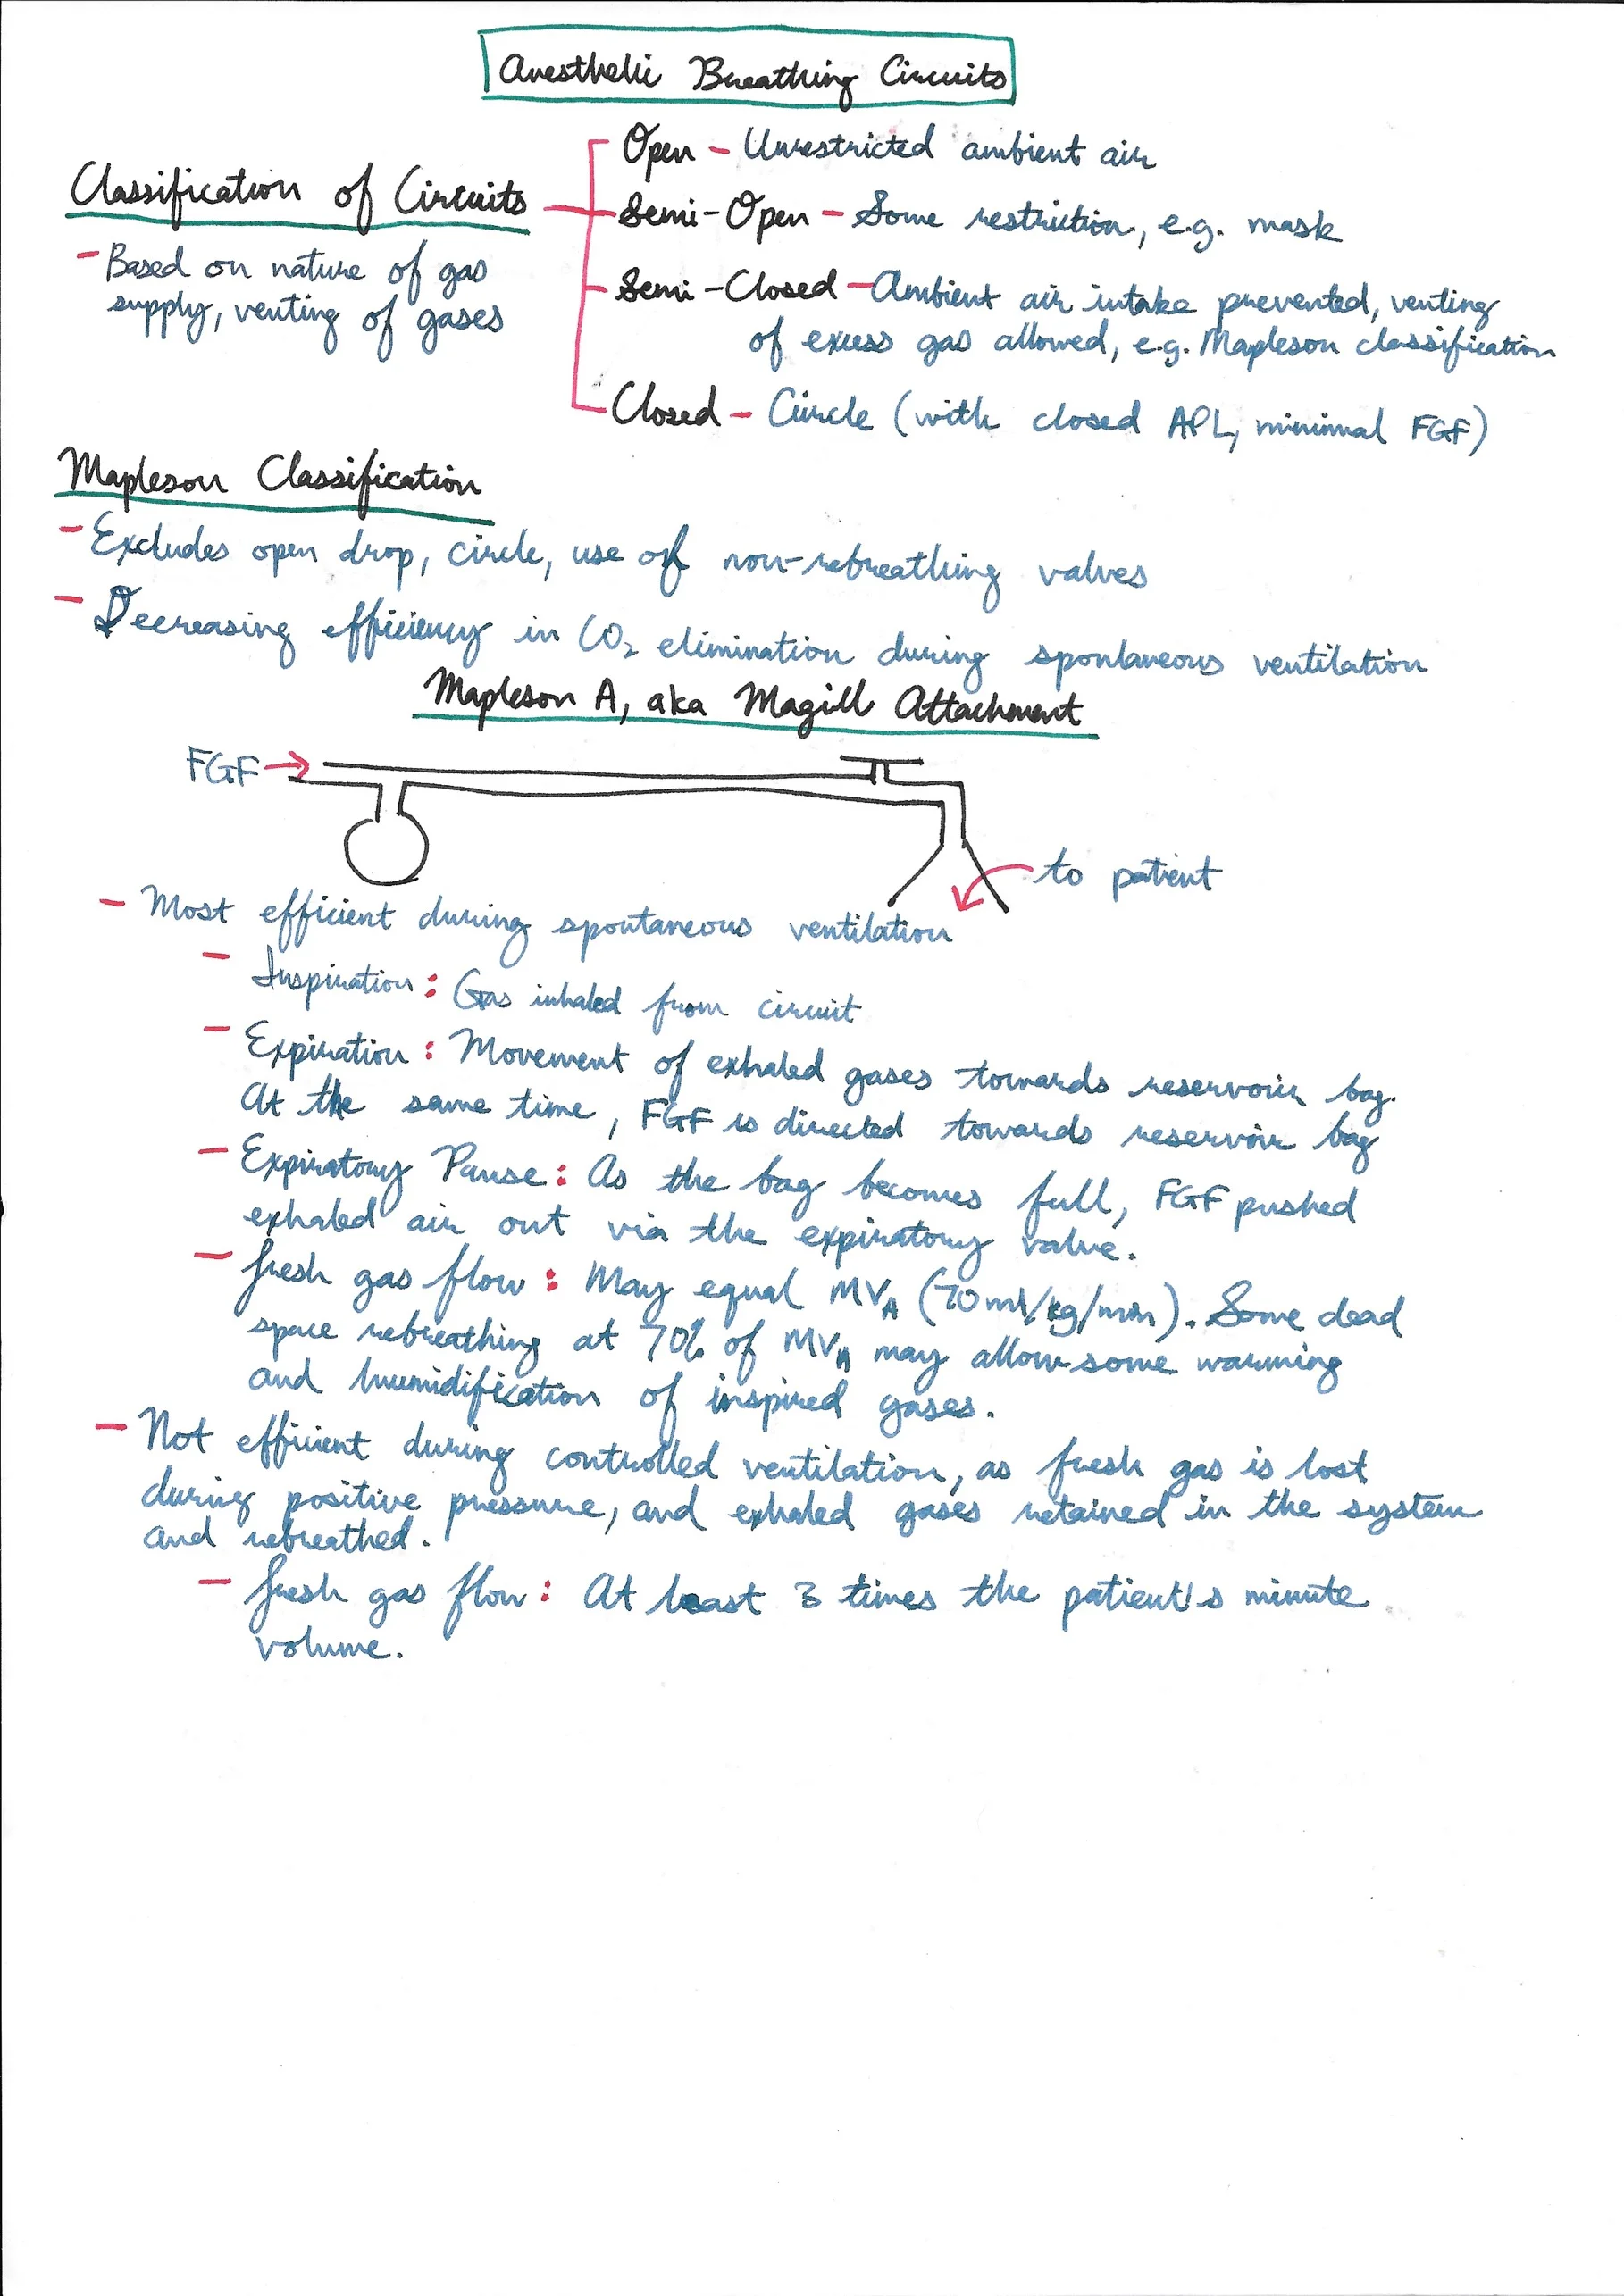 Anesthetic Breathing Circuits
Classification of Circuits
- Based on nature of gas
supply, venting of gases
Open - Unrestricted ambient air
Semi-Open - Some restriction, e.g. mask
Semi-Closed - Ambient air intake prevented, venting
of excess gas allowed, e.g. Mapleson classification
Closed - Circle (with closed APL, minimal FGF)
Mapleson Classification
- Excludes open drop, circle, use of non-rebreathing valves
- Decreasing efficiency in CO₂ elimination during spontaneous ventilation
Mapleson A, aka Magill Attachment
FGF
to patient
- Most efficient during spontaneous ventilation
- Inspiration: Gas inhaled from circuit
- Expiration: Movement of exhaled gases towards reservoir bag.
At the same time, FGF is directed towards reservoir bag
- Expiratory Pause: As the bag becomes full, FGF pushed
exhaled air out via the expiratory valve.
- Fresh gas flow: May equal MV_A (70 ml/kg/min). Some dead
space rebreathing at 70% of MV_A may allow some warming
and humidification of inspired gases.
- Not efficient during controlled ventilation, as fresh gas is lost
during positive pressure, and exhaled gases retained in the system
and rebreathed.
- Fresh gas flow: At least 3 times the patient's minute
volume.